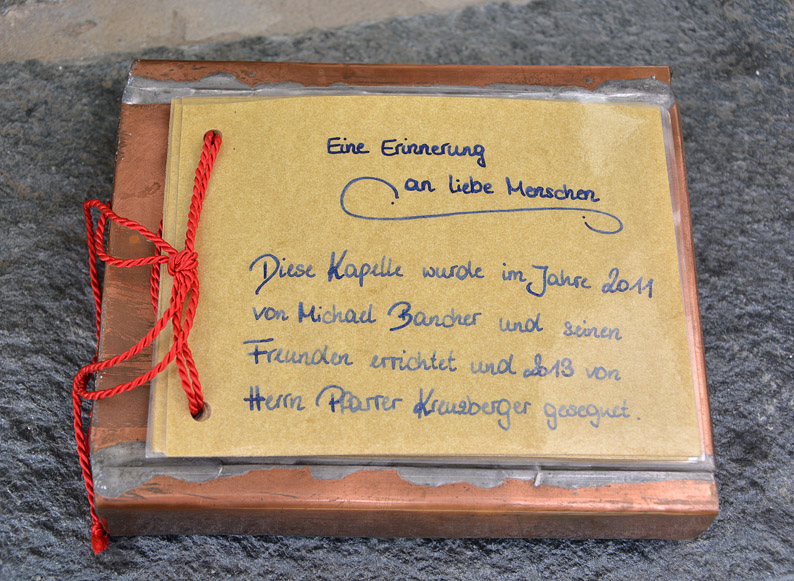 Eine Erinnerung
an liebe Menschen
Diese Kapelle wurde im Jahre 2011
von Michael Bancher und seinen
Freunden errichtet und 2013 von
Herrn Pfarrer Kreuzberger gesegnet.